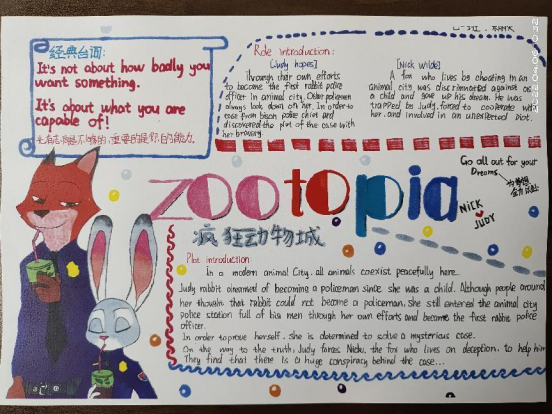 经典台词:
It's not about how badly you
want something.
It's about what you are
capable of!
光有志向是不够的,重要的是你的能力.
Role introduction:
[Judy hopes]
Through their own efforts
to become the first rabbit police
officer in animal city. Other policemen
always look down on her. In order to
case from bison police chief and
discovered the plot of the case with
her bravery.
[Nick Wilde]
A fox who lives by cheating in an
animal city was discriminated against as
a child and gave up his dream. He was
trapped by Judy, forced to cooperate with
her and involved in an unexpected plot.
2022.04.09 10:32
zootopia
疯狂动物城
Go all out for your
Dreams.
为梦想
全力以赴
NICK
JUDY
Plot introduction
In a modern animal City, all animals coexist peacefully here.
Judy rabbit dreamed of becoming a policeman since she was a child. Although people around
her thought that rabbit could not become a policeman, she still entered the animal city
police station full of big men through her own efforts and become the first rabbit police
officer.
In order to prove herself, she is determined to solve a mysterious case.
On the way to the truth, Judy forces Nick, the fox who lives on deception, to help him
They find that there is a huge conspiracy behind the case...